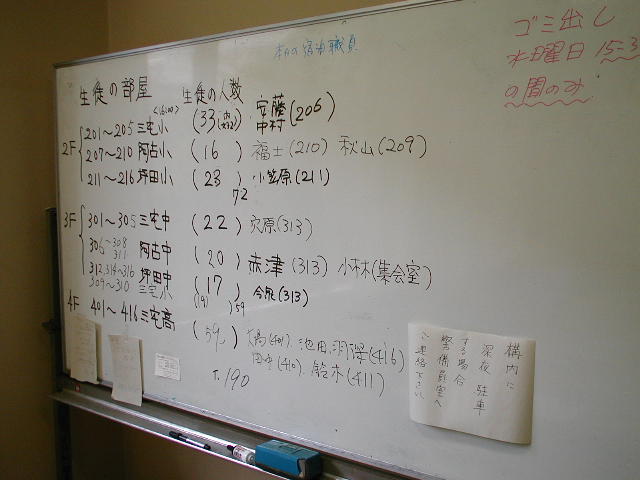 本日の宿泊職員
ゴミ出し
水曜日 15:3
の間のみ
生徒の部屋 生徒の人数
2F 201～205 三宅小 (33) 安藤 中村 (206)
207～210 阿古小 (16) 福士(210) 秋山(209)
211～216 坪田小 (23) 小笠原(211)
72
3F 301～305 三宅中 (22) 穴原(313)
306～308 311 阿古中 (20) 赤津(313) 小林(集会室)
312,314～316 坪田中 (17) 今泉(313)
309～310 三宅小 (19) 59
4F 401～416 三宅高 (59) (401) 池田 (416)
田中(410) 鈴木(411)
T.190
構内に
深夜 駐車
する場合
警備員室へ
ご連絡下さい